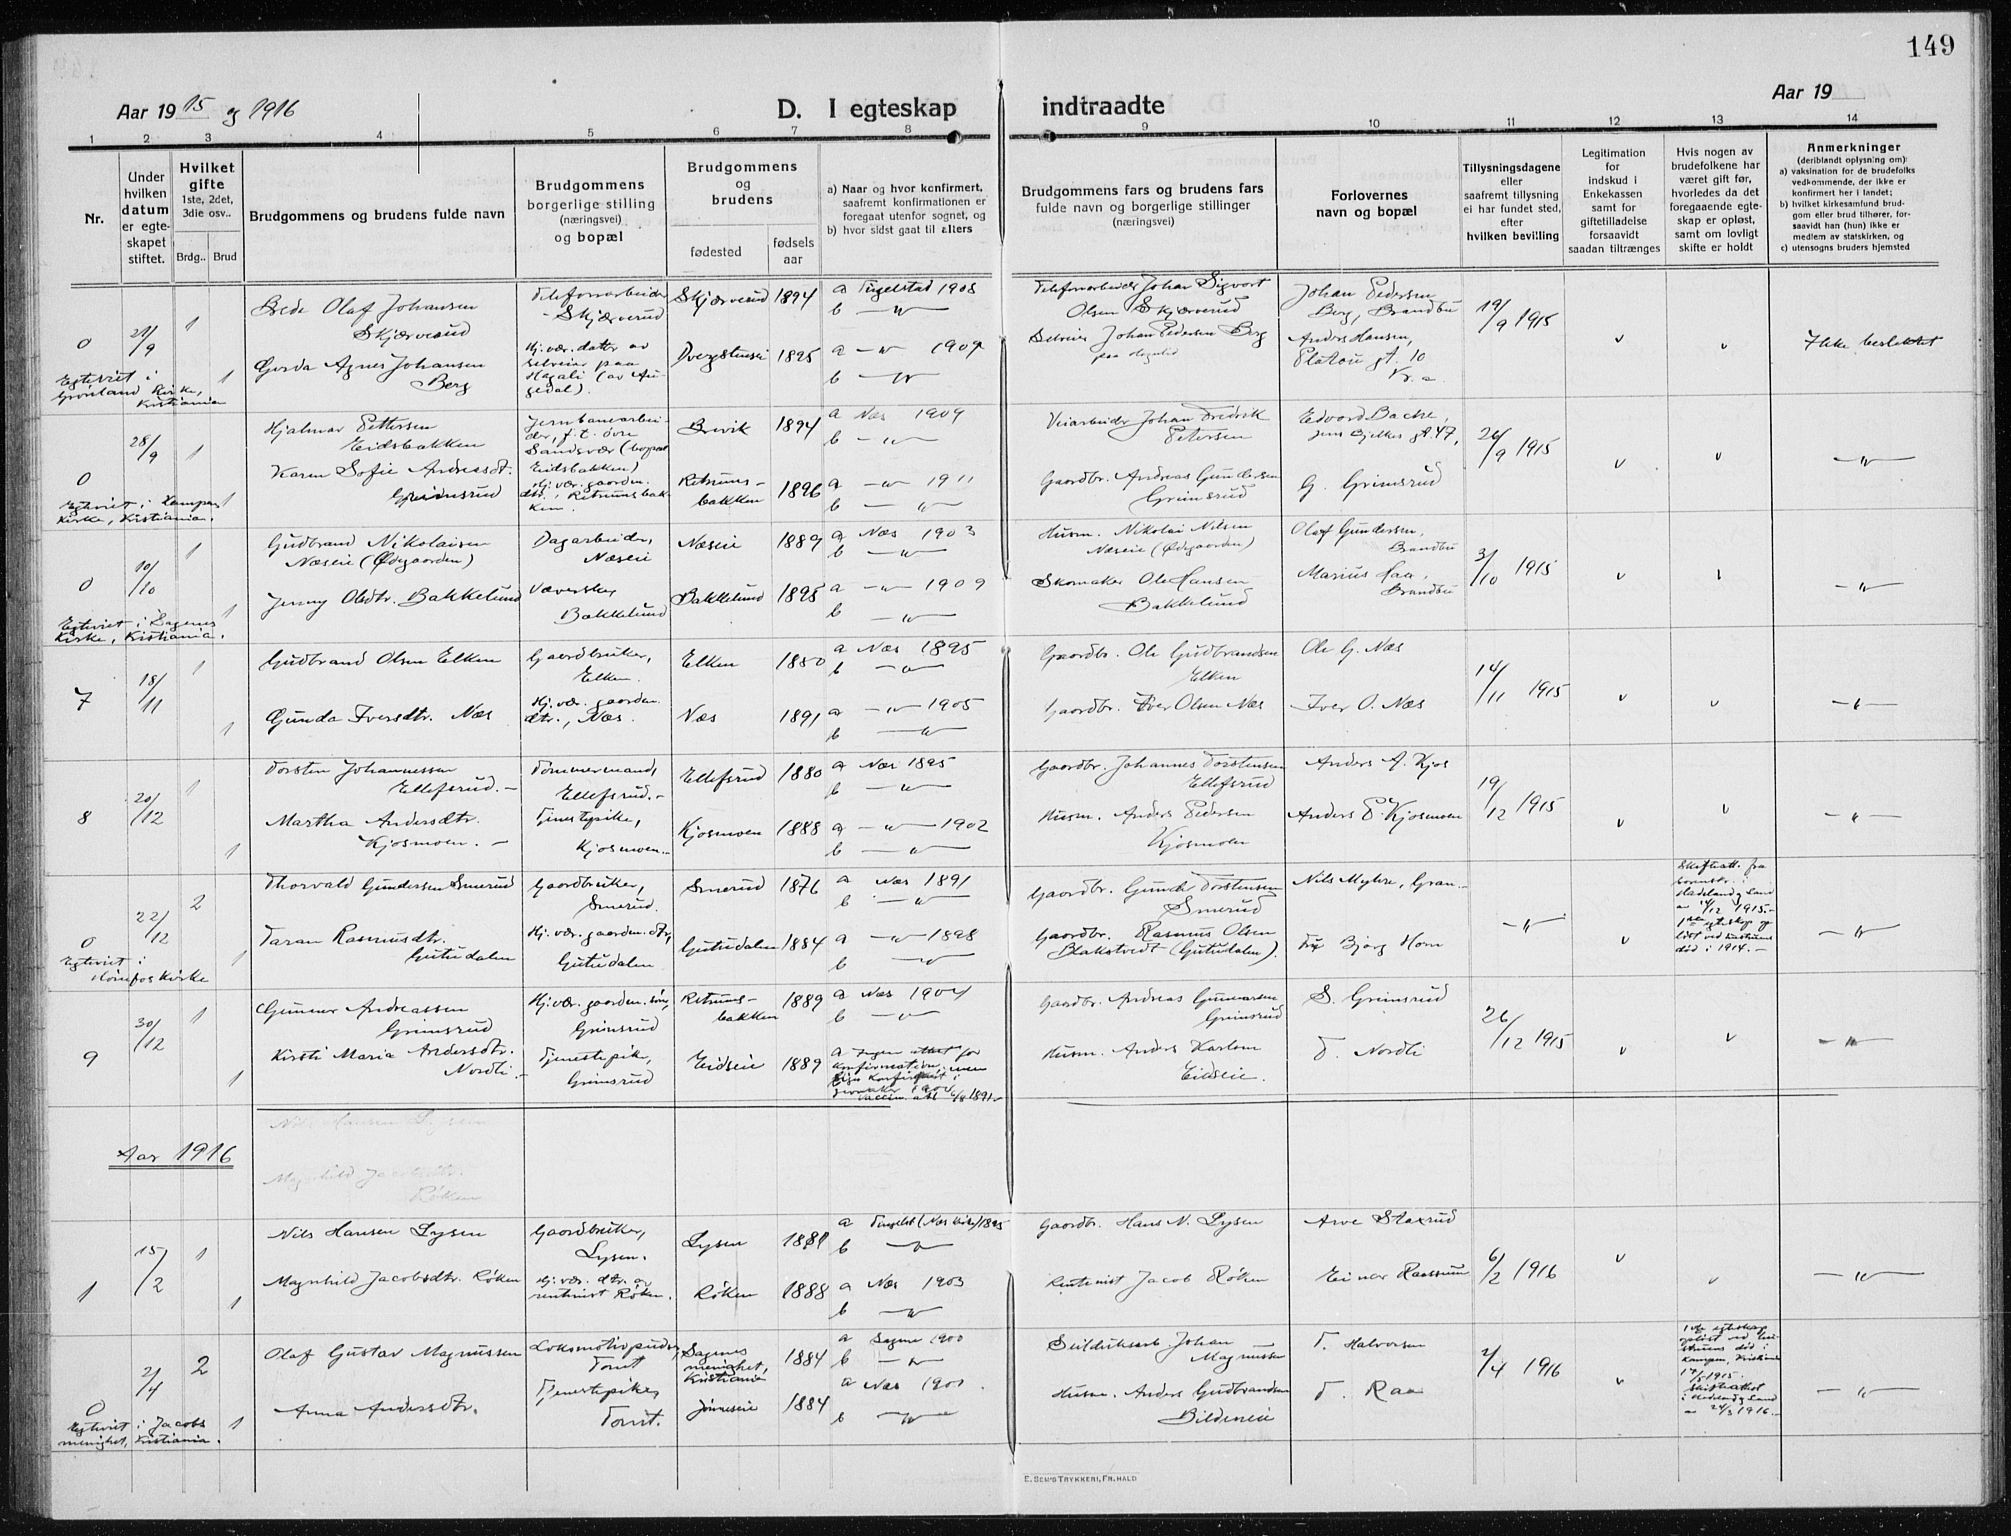 149
Aar 1915 og 1916
D. I egteskap indtraadte
Aar 19
1 2 3 4 5 6 7 8 9 10 11 12 13 14
Nr.
Under hvilken datum er egteskapet stiftet.
Hvilket gifte
1ste, 2det, 3die osv..
Brdg.. Brud
Brudgommens og brudens fulde navn
Brudgommens borgerlige stilling
(næringsvei)
og bopæl
Brudgommens og brudens
fødested
fødsels aar
a) Naar og hvor konfirmert, saafremt konfirmationen er foregaat utenfor sognet, og
b) hvor sidst gaat til alters
Brudgommens fars og brudens fars
fulde navn og borgerlige stillinger
(næringsvei)
Forlovernes navn og bopæl
Tillysningsdagene
eller
saafremt tillysning ei har fundet sted, efter
hvilken bevilling
Legitimation for indskud i Enkekassen samt for giftetilladelse forsaavidt saadan tiltrænges
Hvis nogen av brudefolkene har været gift før, hvorledes da det foregaaende egteskap er opløst, samt om lovligt skifte er holdt
Anmerkninger
(deriblandt oplysning om):
a) vaksination for de brudefolks vedkommende, der ikke er konfirmert her i landet;
b) hvilket kirkesamfund brudgom eller brud tilhører, forsaavidt han (hun) ikke er medlem av statskirken, og
c) utensogns bruders hjemsted
0 21/9 1 Brede Olaf Johansen Skjærverud
Telefonarbeider Skjærverud
Skjærverud 1894 a Tingelstad 1908
b —„—
Telefonarbeider Johan Sigvart Olsen Skjærverud
Johan Pedersen Berg, Brandbu
19/9 1915
Ikke beslektet
1 Gerda Agnes Johansen Berg
Hj. vær. datter av selveier paa Hagali (av Augedal).
1895 a —„— 1909
b —„—
Selveier Johan Pedersen Berg
Anders Hansen, Platou gt. 10 Kr.a.
Egteviet i Grønland Kirke, Kristiania
0 28/9 1 Hjalmar Pettersen Eidsbakken
Jernbanearbeider, f.t. øvre Sandsvær (bopæl Eidsbakken)
Brevik 1894 a Næs 1909
b —„—
Veiarbeider Johan Fredrik Petersen
Edvard Bache, Jens Bjelkes gt. 47,
26/9 1915
—„—
1 Karen Sofie Andreasdt. Grimsrud
Hj. vær. gaarden. dtr., Retrumsbakken.
Retrumsbakken 1896 a —„— 1911
b —„—
Gaardbr. Andreas Gundersen Grimsrud
G. Grimsrud
Egteviet i Kampen Kirke, Kristiania.
0 10/10 1 Gudbrand Nikolaisen Næseie (Ødegaarden)
Dagarbeider, Næseie
Næseie 1889 a Næs 1903
b —„—
Husm. Nikolai Nilsen Næseie (Ødegaarden)
Olaf Gundersen, Brandbu
3/10 1915
—„—
1 Jenny Olsdtr. Bakkelund
Væverske, Bakkelund
Bakkelund 1895 a —„— 1909
b —„—
Skomaker Ole Hansen Bakkelund
Marius Haa, Brandbu
Egteviet i Sagenes Kirke, Kristiania.
7 18/11 1 Gudbrand Olsen Elken
Gaardbruker, Elken.
Elken 1880 a Næs 1895
b —„—
Gaardbr. Ole Gudbrandsen Elken
Ole G. Næs
14/11 1915
—„—
1 Gunda Iversdtr. Næs
Hj. vær. gaarden. dtr., Næs.
Næs 1891 a —„— 1905
b —„—
Gaardbr. Iver Olsen Næs
Iver O. Næs
8 20/12 1 Torsten Johannessen Ellefsrud.—
Tømmermand, Ellefsrud.—
Ellefsrud 1880 a Næs 1895
b —„—
Gaardbr. Johannes Torstensen Ellefsrud
Anders A. Kjos
19/12 1915
—„—
1 Martha Andersdtr. Kjosmoen.—
Tjenestepike, Kjosmoen.
Kjosmoen 1888 a —„— 1902
b —„—
Husm. Anders Pedersen Kjosmoen
Anders P. Kjosmoen
0 22/12 2 Thorvald Gundersen Smerud
Gaardbruker, Smerud.
Smerud 1876 a Næs 1891
b —„—
Gaardbr. Gunder Torstensen Smerud
Nils Myhre, Gran.
—„—
Skifteatt. fra sorenskr. i Hadeland og Land 1915.—
1ste egteskap opløst ved hustruens død i 1914.—
—„—
1 Taran Rasmusdtr. Gutudalen
Hj. vær. gaarden. dtr, Gutudalen
Gutudalen 1884 a —„— 1898
b —„—
Gaardbr. Rasmus Olsen Blakstvedt (Gutudalen).
Bjørg Horn
Egteviet i Hønefos Kirke
9 30/12 1 Gunner Andreassen Grimsrud
Hj. vær. gaarden. søn, Grimsrud
Retrumsbakken 1889 a Næs 1904
b —„—
Gaardbr. Andreas Gunnarsen Grimsrud
S. Grimsrud
26/12 1915
—„—
1 Kirsti Maria Andersdtr. Nordli.—
Tjenestepik, Grimsrud
Eidseie 1889 a Ingen attest for konfirmation, men
Jevnaker 1904
1891.—
Husm. Anders Karlsen Eidseie.
T. Nordli
Nils Hansen Lysen
Aar 1916
Magnhild Jacobsdtr. Røken
1 15/2 1 Nils Hansen Lysen
Gaardbruker, Lysen.
Lysen 1881 a Tingelst (Næs kirke) 1895
b —„—
Gaardbr. Hans N. Lysen
Arve Staxrud
6/2 1916
—„—
1 Magnhild Jacobsdtr. Røken
Hj. vær. dtr. av rentenist Røken.
Røken 1888 a Næs 1903
b —„—
Rentenist Jacob Røken
Einar Raassum
0 2/4 2 Olaf Gustav Magnussen
Lokomotivpudser, Tomt
Sagenes menighet, Kristiania 1884 a Sagene 1900
b —„—
Johan Magnussen
T. Halvorsen
2/4 1916
1ste egteskap opløst ved hustruens død i Kampen, Kristiania 1915.
Skifteattest i Hadeland og Land 24/3 1916.—
—„—
1 Anna Andersdtr.
Tjenestepike, Tomt.
Jønneseie 1884 a Næs
b —„—
Husm. Anders Gudbrandsen Bildeneie
T. Raa
Egteviet i Jacobs menighet, Kristiania.
E. Sem's Trykkeri, Fr.hald